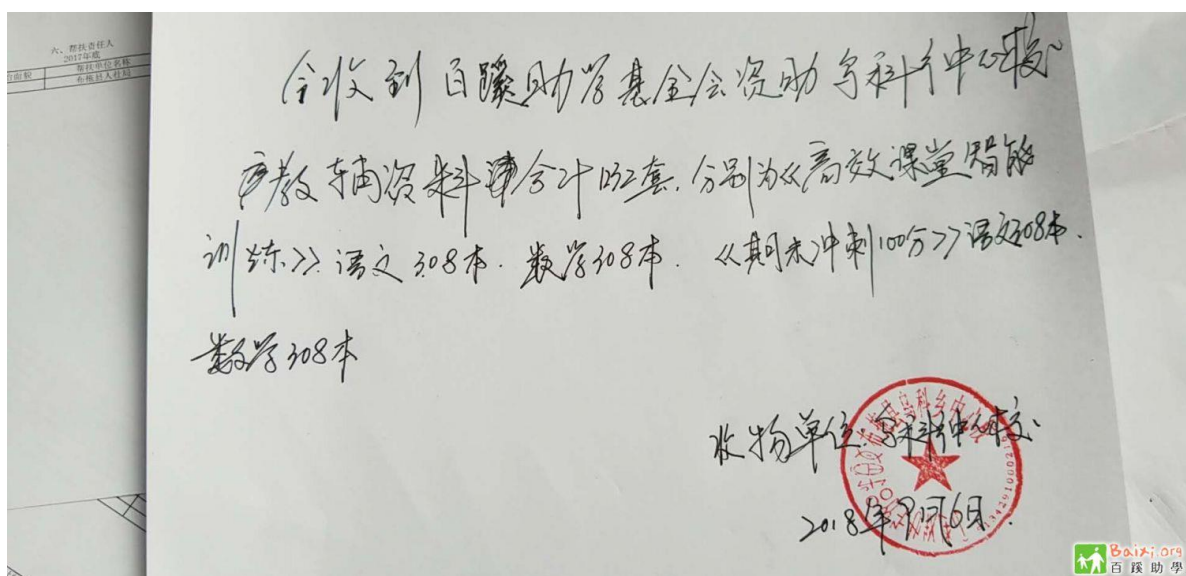 六、帮扶责任人
2017年底
帮扶单位名称
布拖县人社局
今收到百蹊助学基金会资助乌科乡中心校
教辅资料 合计1232套.分别为《高效课堂智能
训练》语文308本.数学308本.《期末冲刺100分》语文308本.
数学308本
收物单位:乌科乡中心校
2018年9月6日.
Baixi.org
百蹊助學